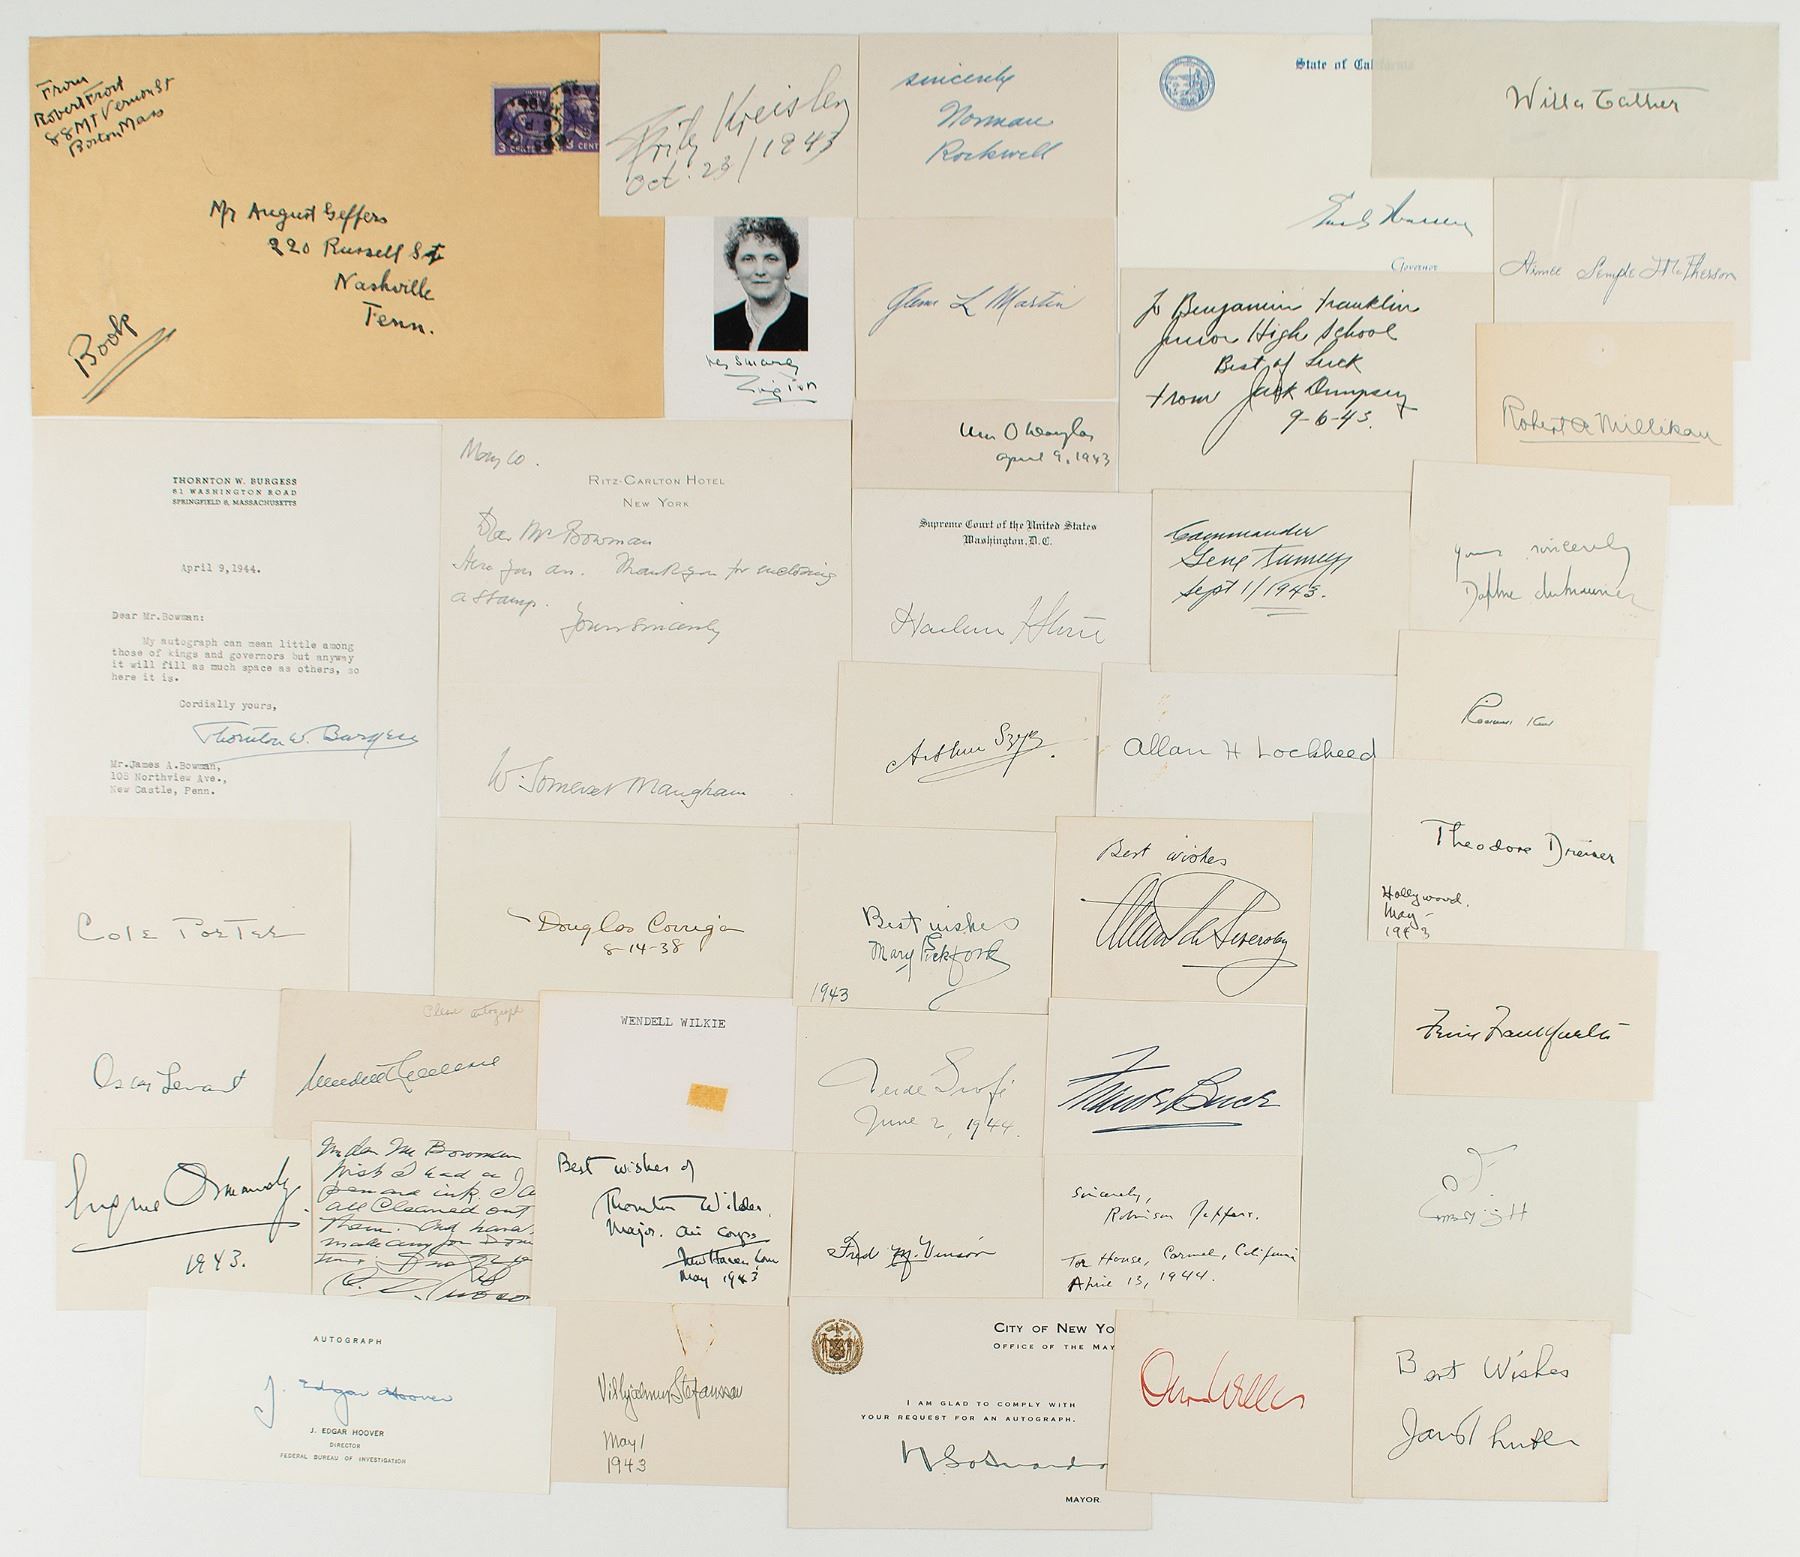 From
Robert Frost
88 Mt Vernon St
Boston Mass
3 CENTS
3 CENT
Mr August Geffers
220 Russell St
Nashville
Tenn.
Book
Fritz Kreisler
Oct. 23/1943
sincerely
Norman
Rockwell
State of California
Governor
Willa Cather
Glenn L Martin
Aimee Semple McPherson
To Benjamin Franklin
Junior High School
Best of Luck
from Jack Dempsey
9-6-43.
Robert A Millikan
Wm O Douglas
April 9, 1943
THORNTON W. BURGESS
61 WASHINGTON ROAD
SPRINGFIELD 8, MASSACHUSETTS
April 9, 1944.
Dear Mr.Bowman:
My autograph can mean little among
those of kings and governors but anyway
it will fill as much space as others, so
here it is.
Cordially yours,
Thornton W. Burgess
Mr.James A.Bowman,
108 Northview Ave.,
New Castle, Penn.
May 10.
RITZ-CARLTON HOTEL
NEW YORK
Dear Mr Bowman
Here you are. Thank you for enclosing
a stamp.
Yours sincerely
W. Somerset Maugham
Supreme Court of the United States
Washington, D.C.
Harlan F Stone
Commander
Gene Tunney
Sept 11/1943.
yours sincerely
Daphne du Maurier
Arthur Szyk
Allan H Lockheed
Theodore Dreiser
Hollywood.
May-
1943
Cole Porter
Douglas Corrigan
8-14-38
Best wishes
Mary Pickford
1943
Best wishes
Felix Frankfurter
Oscar Levant
Please autograph
WENDELL WILKIE
June 2, 1944.
Frank Buck
Eugene Ormandy
1943.
My dear Mr Bowman
Wish I had a
pen and ink. I a
all cleaned out
Best wishes of
Thornton Wilder.
Major. Air Corps
New Haven Conn
May 1943
Fred M. Vinson
Sincerely,
Robinson Jeffers.
Tor House, Carmel, California
April 13, 1944.
AUTOGRAPH
J. Edgar Hoover
J. EDGAR HOOVER
DIRECTOR
FEDERAL BUREAU OF INVESTIGATION
Vilhjalmur Stefansson
May 1
1943
CITY OF NEW YO
OFFICE OF THE MAY
I AM GLAD TO COMPLY WITH
YOUR REQUEST FOR AN AUTOGRAPH.
MAYOR
Best Wishes